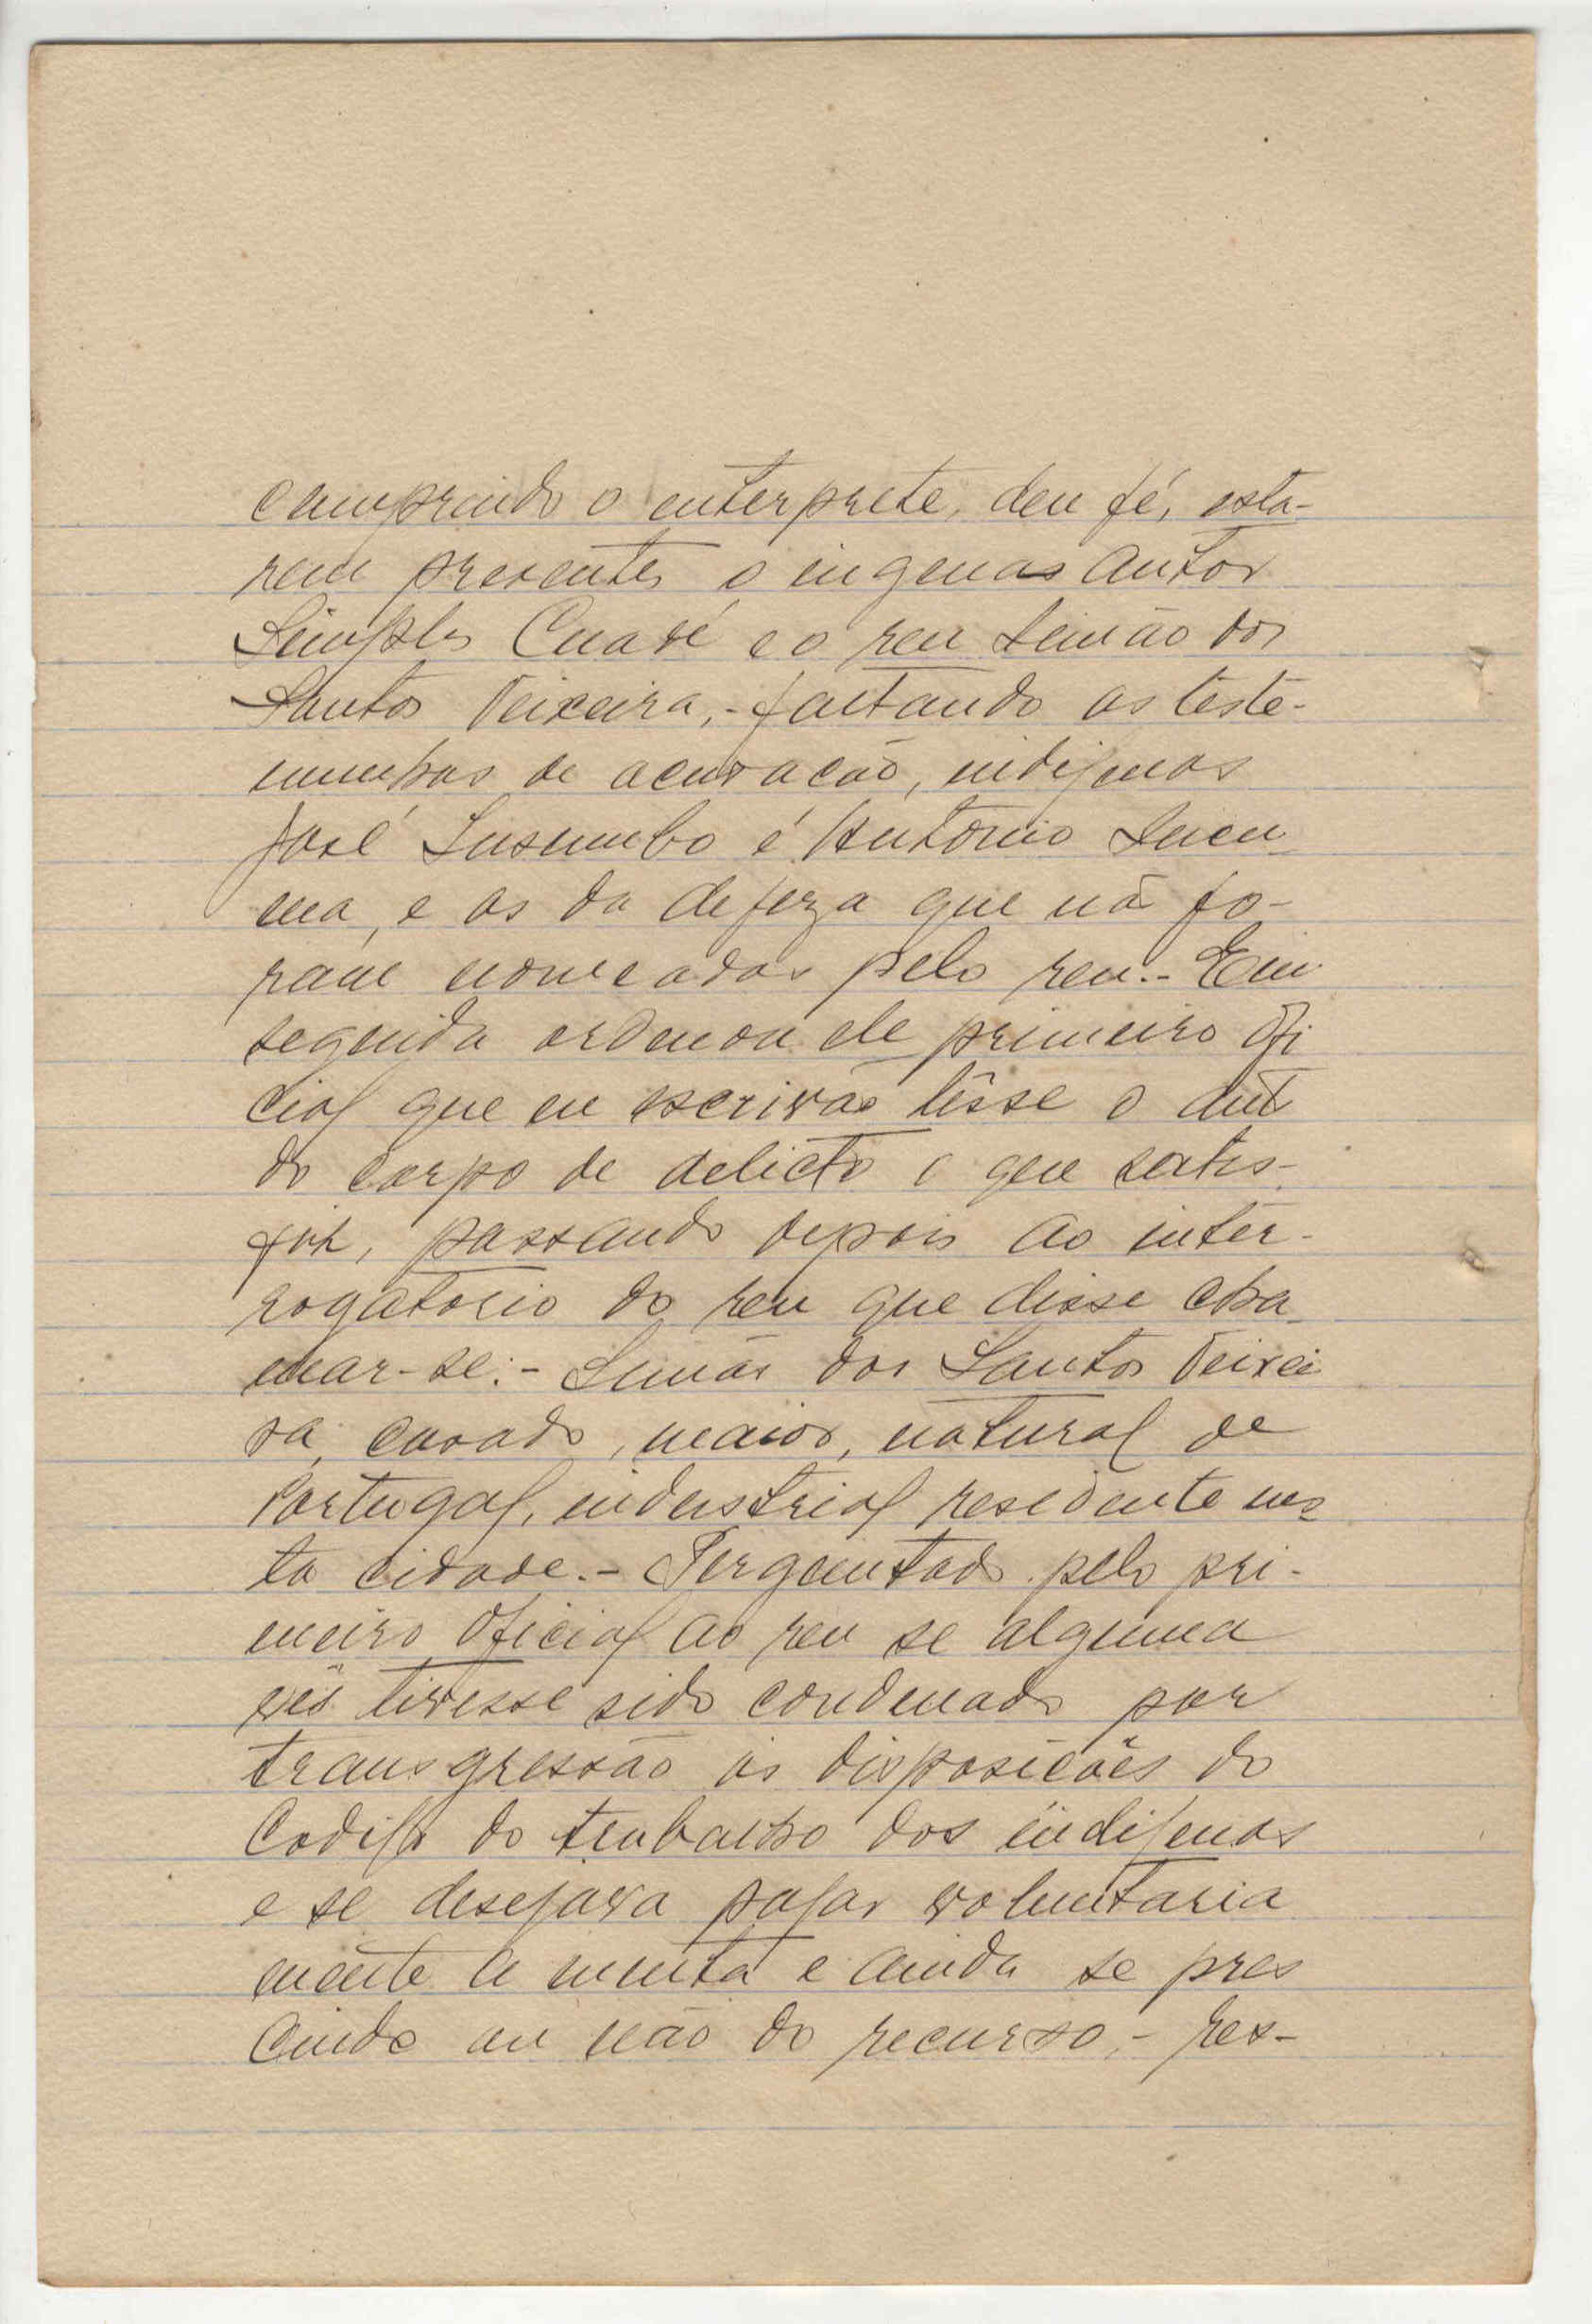 cumprindo o enterprete, deu fé, esta-
rem presentes o ingenas autor
Simples Cuaré e o reu Simão dos
Santos Teixeira,- faltando as teste-
munhas de acusação, indigenas
José Susumbo é Antonio
ma, e as da defeza que não fo-
ram nomeadas pelo reu.- Em
seguida ordenou ele primeiro Ofi
cial que eu escrivão lêsse o aut
do corpo de delicto o que satis-
fiz, passando depois ao inter-
rogatorio do reu que disse cha
mar-se:- Simão dos Santos Teixei
ra, casado, maior, natural de
Portugal, industrial residente nes
ta cidade.- Perguntado pelo pri-
meiro Oficial ao reu se alguma
vês tivesse sido condenado por
transgressão ás disposições do
Codigo do trabalho dos indigenas
e se desejava pagar voluntaria
mente a multa e ainda se pres
cinde ou não do recurso,- res-